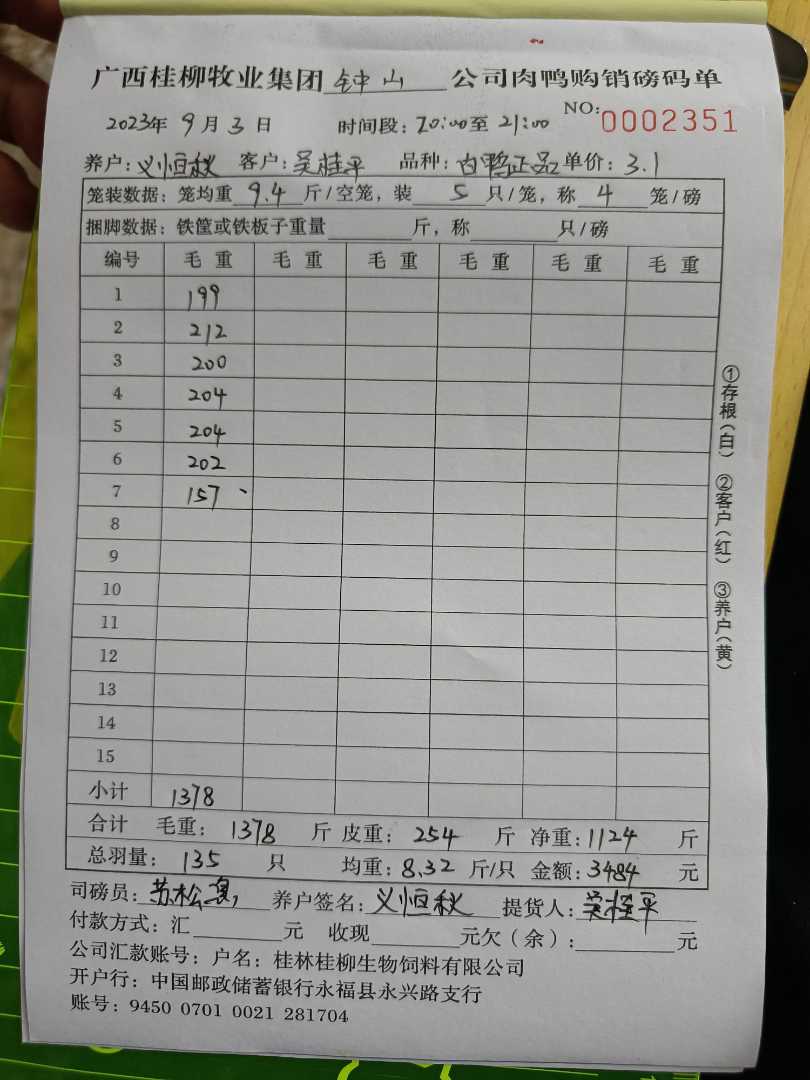 广西桂柳牧业集团 钟山 公司肉鸭购销磅码单
2023年 9月 3日 时间段:20:00至 21:00 NO:0002351
养户:义恒秋 客户:吴桂平 品种:白鸭正品 单价:3.1
笼装数据:笼均重 9.4 斤/空笼,装 5 只/笼,称 4 笼/磅
捆脚数据:铁筐或铁板子重量 斤,称 只/磅
编号 毛重 毛重 毛重 毛重 毛重 毛重
1 199
2 212
3 200
4 204
5 204
6 202
7 157
8
9
10
11
12
13
14
15
小计 1378
合计 毛重:1378 斤 皮重:254 斤 净重:1124 斤
总羽量:135 只 均重:8.32 斤/只 金额:3484 元
司磅员:苏松 养户签名:义恒秋 提货人:吴桂平
付款方式:汇 元 收现 元欠(余): 元
公司汇款账号:户名:桂林桂柳生物饲料有限公司
开户行:中国邮政储蓄银行永福县永兴路支行
账号:9450 0701 0021 281704
①存根(白) ②客户(红) ③养户(黄)